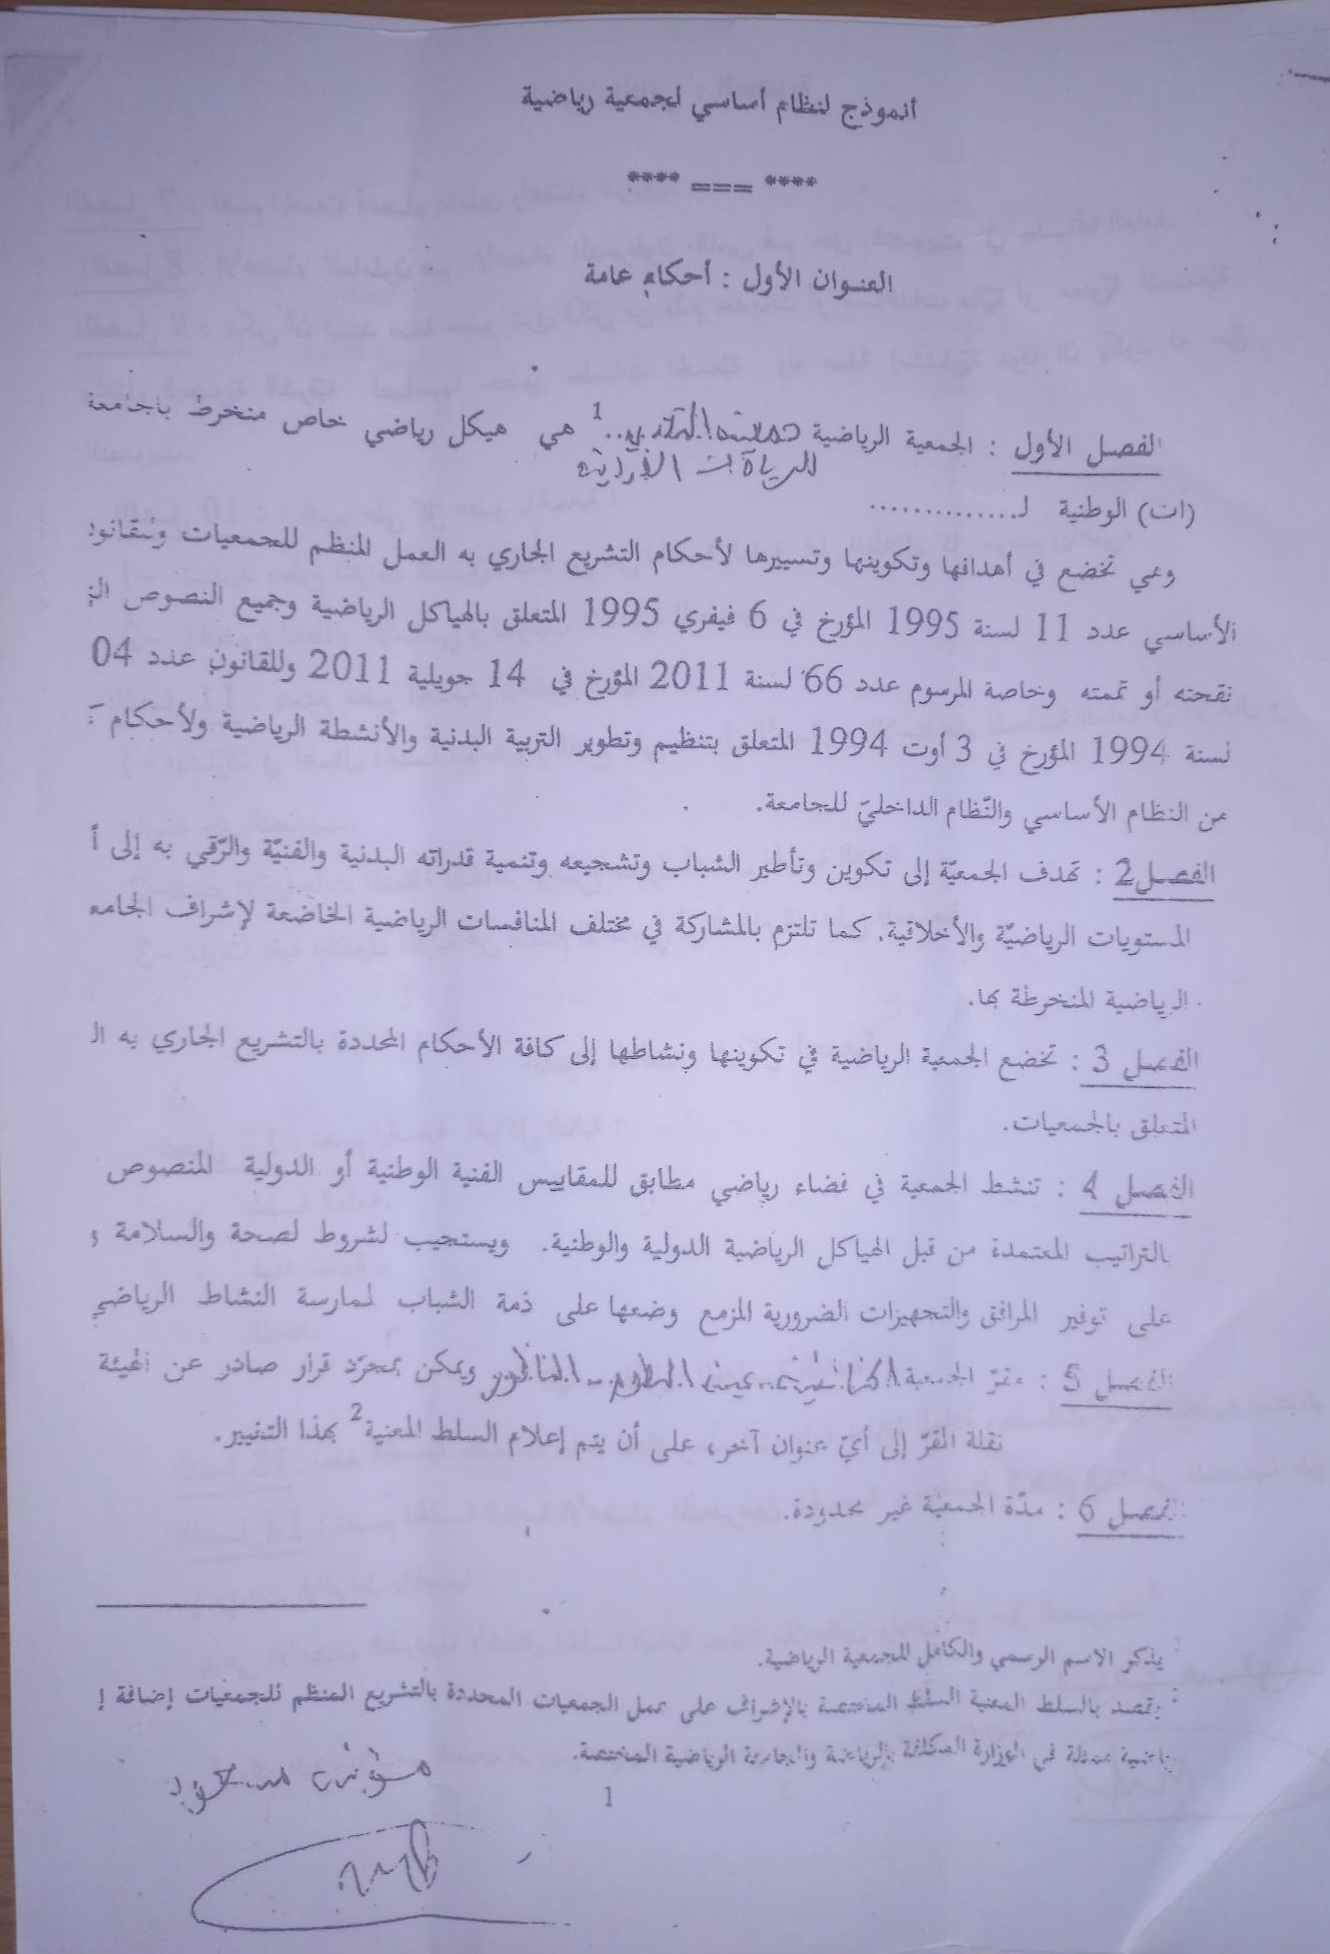 أنموذج لنظام أساسي لجمعية رياضية
**** === ****
العنوان الأول : أحكام عامة
الفصل الأول : الجمعية الرياضية 1 هي هيكل رياضي خاص منخرط بالجامعة
للرياضات الفردية
(ات) الوطنية لـ..............
وهي تخضع في أهدافها وتكوينها وتسييرها لأحكام التشريع الجاري به العمل المنظم للجمعيات
الأساسي عدد 11 لسنة 1995 المؤرخ في 6 فيفري 1995 المتعلق بالهياكل الرياضية وجميع النصوص
نقحته أو تممته وخاصة المرسوم عدد 66 لسنة 2011 المؤرخ في 14 جويلية 2011 وللقانون عدد 04
لسنة 1994 المؤرخ في 3 أوت 1994 المتعلق بتنظيم وتطوير التربية البدنية والأنشطة الرياضية ولأحكام
من النظام الأساسي والنّظام الداخليّ للجامعة.
الفصل2 : تهدف الجمعيّة إلى تكوين وتأطير الشباب وتشجيعه وتنمية قدراته البدنية والفنيّة والرّقي به إلى أ
المستويات الرياضيّة والأخلاقية. كما تلتزم بالمشاركة في مختلف المنافسات الرياضية الخاضعة لإشراف الجامعة
الرياضية المنخرطة بها.
الفصل 3 : تخضع الجمعية الرياضية في تكوينها ونشاطها إلى كافة الأحكام المحددة بالتشريع الجاري به ال
المتعلق بالجمعيات.
الفصل 4 : تنشط الجمعية في فضاء رياضي مطابق للمقاييس الفنية الوطنية أو الدولية المنصوص
بالتراتيب المعتمدة من قبل الهياكل الرياضية الدولية والوطنية. ويستجيب لشروط لصحة والسلامة و
على توفير المرافق والتجهيزات الضرورية المزمع وضعها على ذمة الشباب لممارسة النشاط الرياضي
الفصل 5 : مقرّ الجمعية ويمكن بمجرّد قرار صادر عن الهيئة
نقلة المقرّ إلى أيّ عنوان آخر، على أن يتم إعلام السلط المعنية2 بهذا التغيير.
الفصل 6 : مدّة الجمعية غير محدودة.
يذكر الاسم الرسمي والكامل للجمعية الرياضية.
يقصد بالسلط المعنية السلط المختصة بالإشراف على عمل الجمعيات المحددة بالتشريع المنظم للجمعيات إضافة إ
ممثلة في الوزارة المكلفة بالرياضة والجامعة الرياضية المختصة.
1